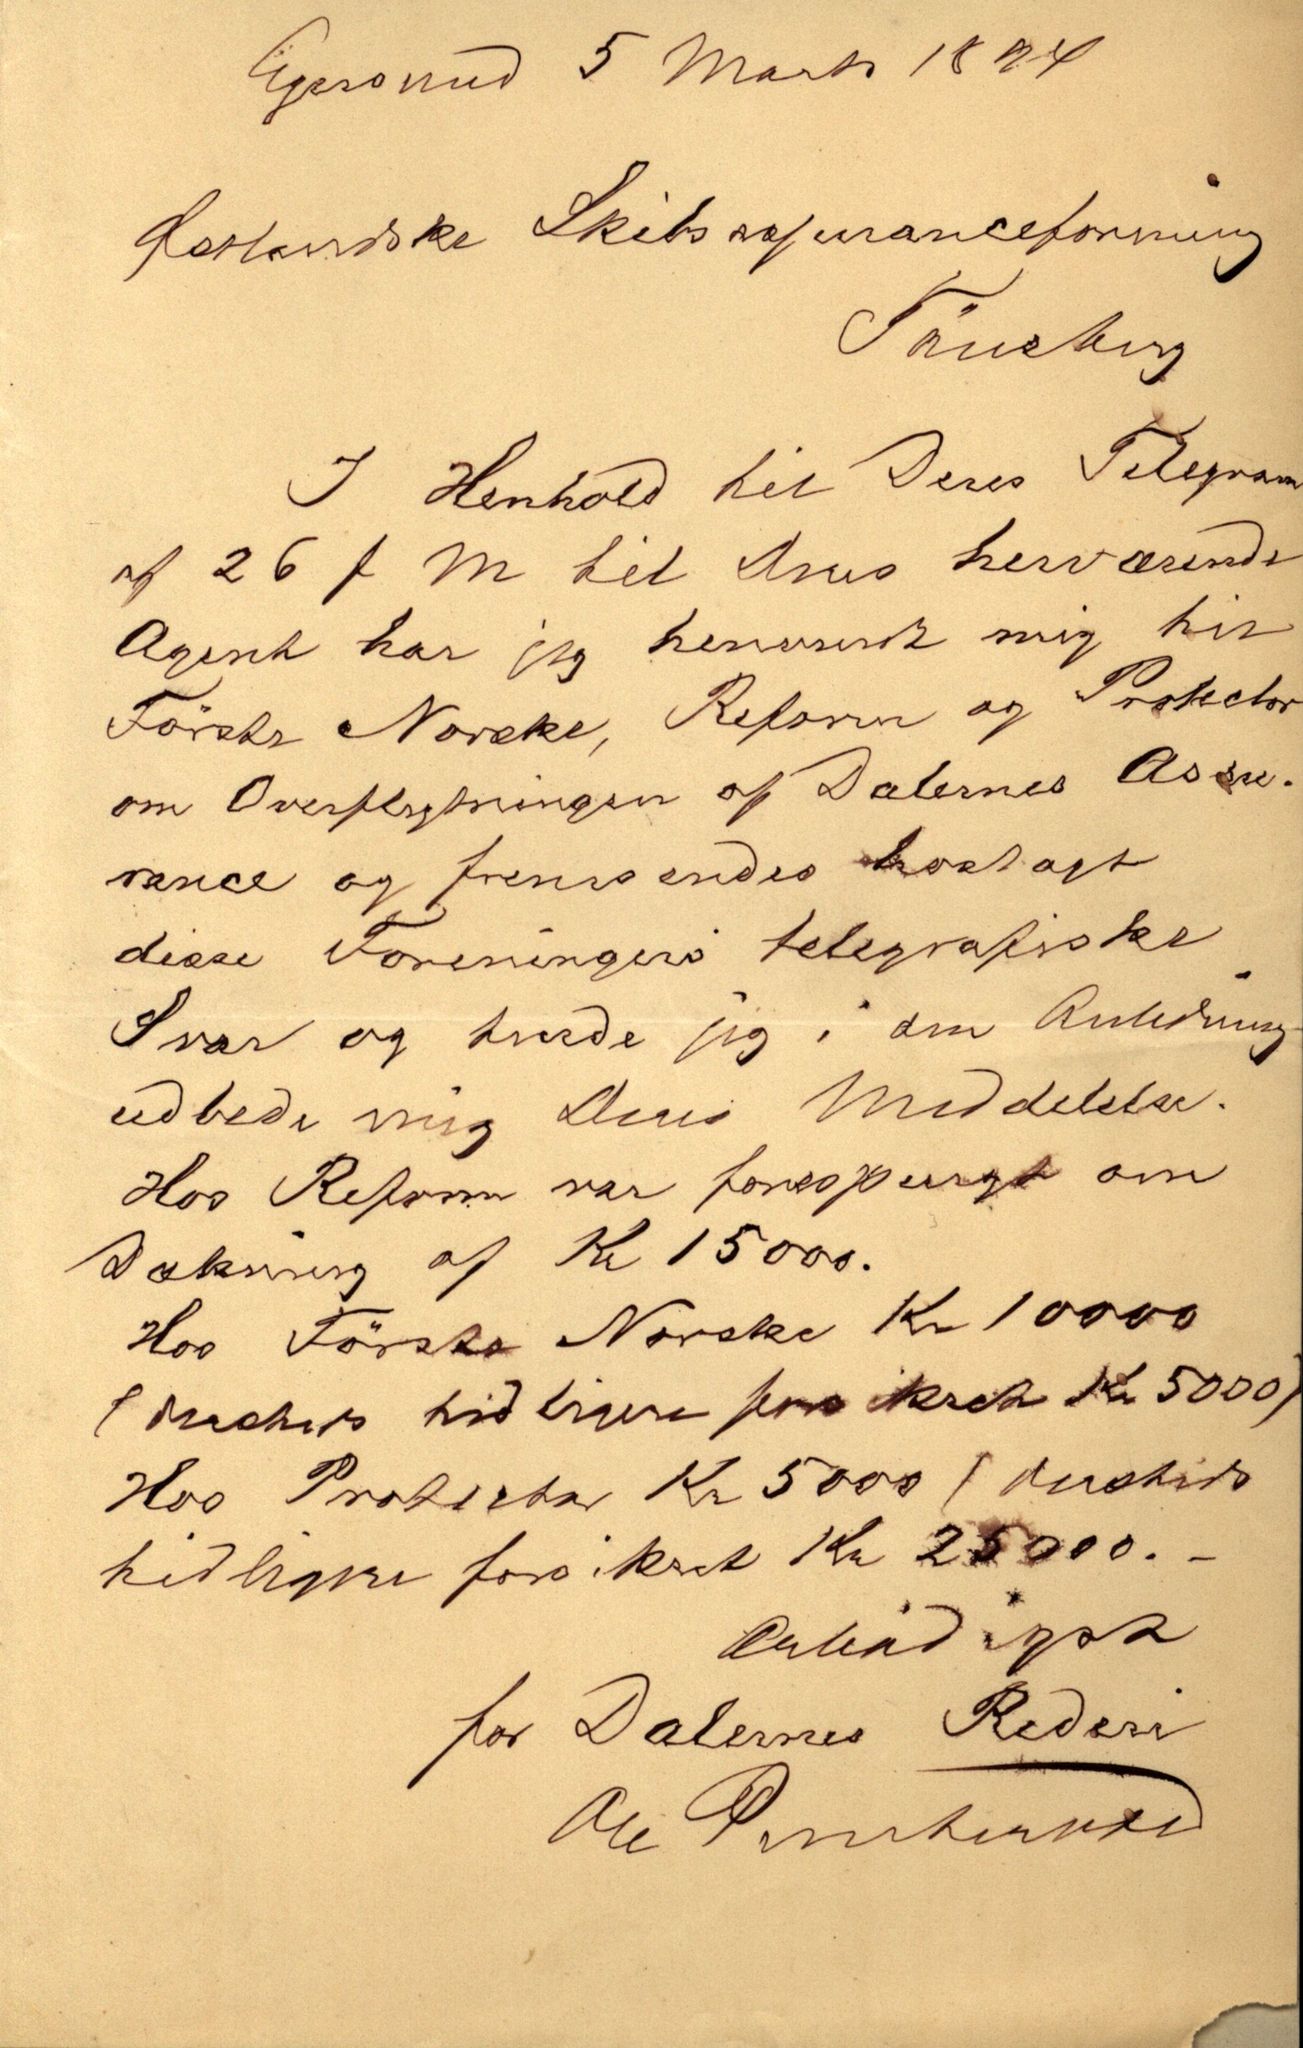 Egersund 5 Marts 1894
Østlandske Skibsassuranceforening
Tönsberg
I Henhold til Deres Telegram
af 26 f M til Deres herværende
Agent har jeg henvendt mig til
Förste Norske, Reform og Protector
om Overflytningen af Dalernes Assu-
rance og fremsendes hoslagt
disse Foreningers telegrafiske
Svar og turde jeg i den Anledning
udbede mig Deres Meddelelse.
Hos Reform var forespurgt om
Dækning af Kr 15000.
Hos Förste Norske Kr 10000
( tidligere forsikret Kr 5000)
Hos Protector Kr 5000 (
tidligere forsikret Kr 25000. -
Ærbödigst
for Dalernes Rederi
Ole